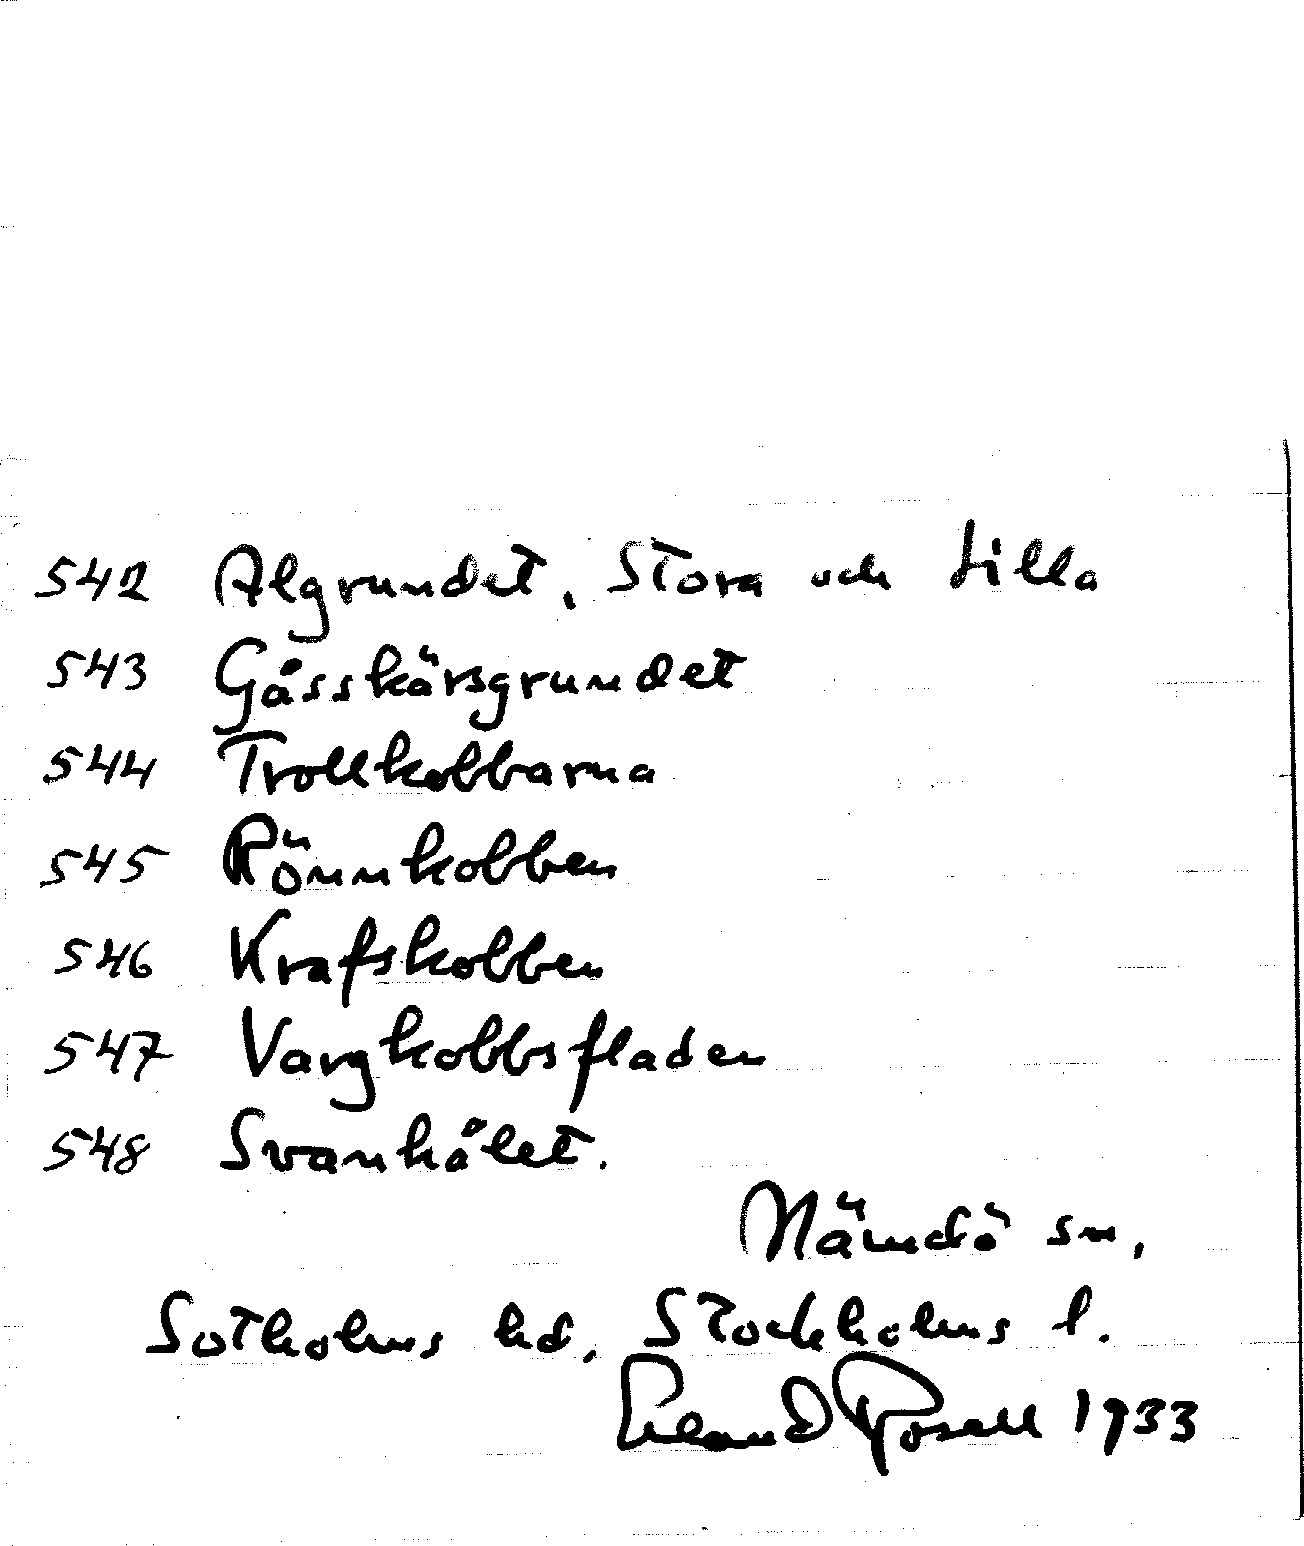 542 Algrundet, Stora och Lilla
543 Gåsskärsgrundet
544 Trollkobbarna
545 Rönnkobben
546 Krafskobben
547 Vargkobbsfladen
548 Svanhålet.
Nämdö sn,
Sotholms hd, Stockholms l.
Erland Rosell 1933